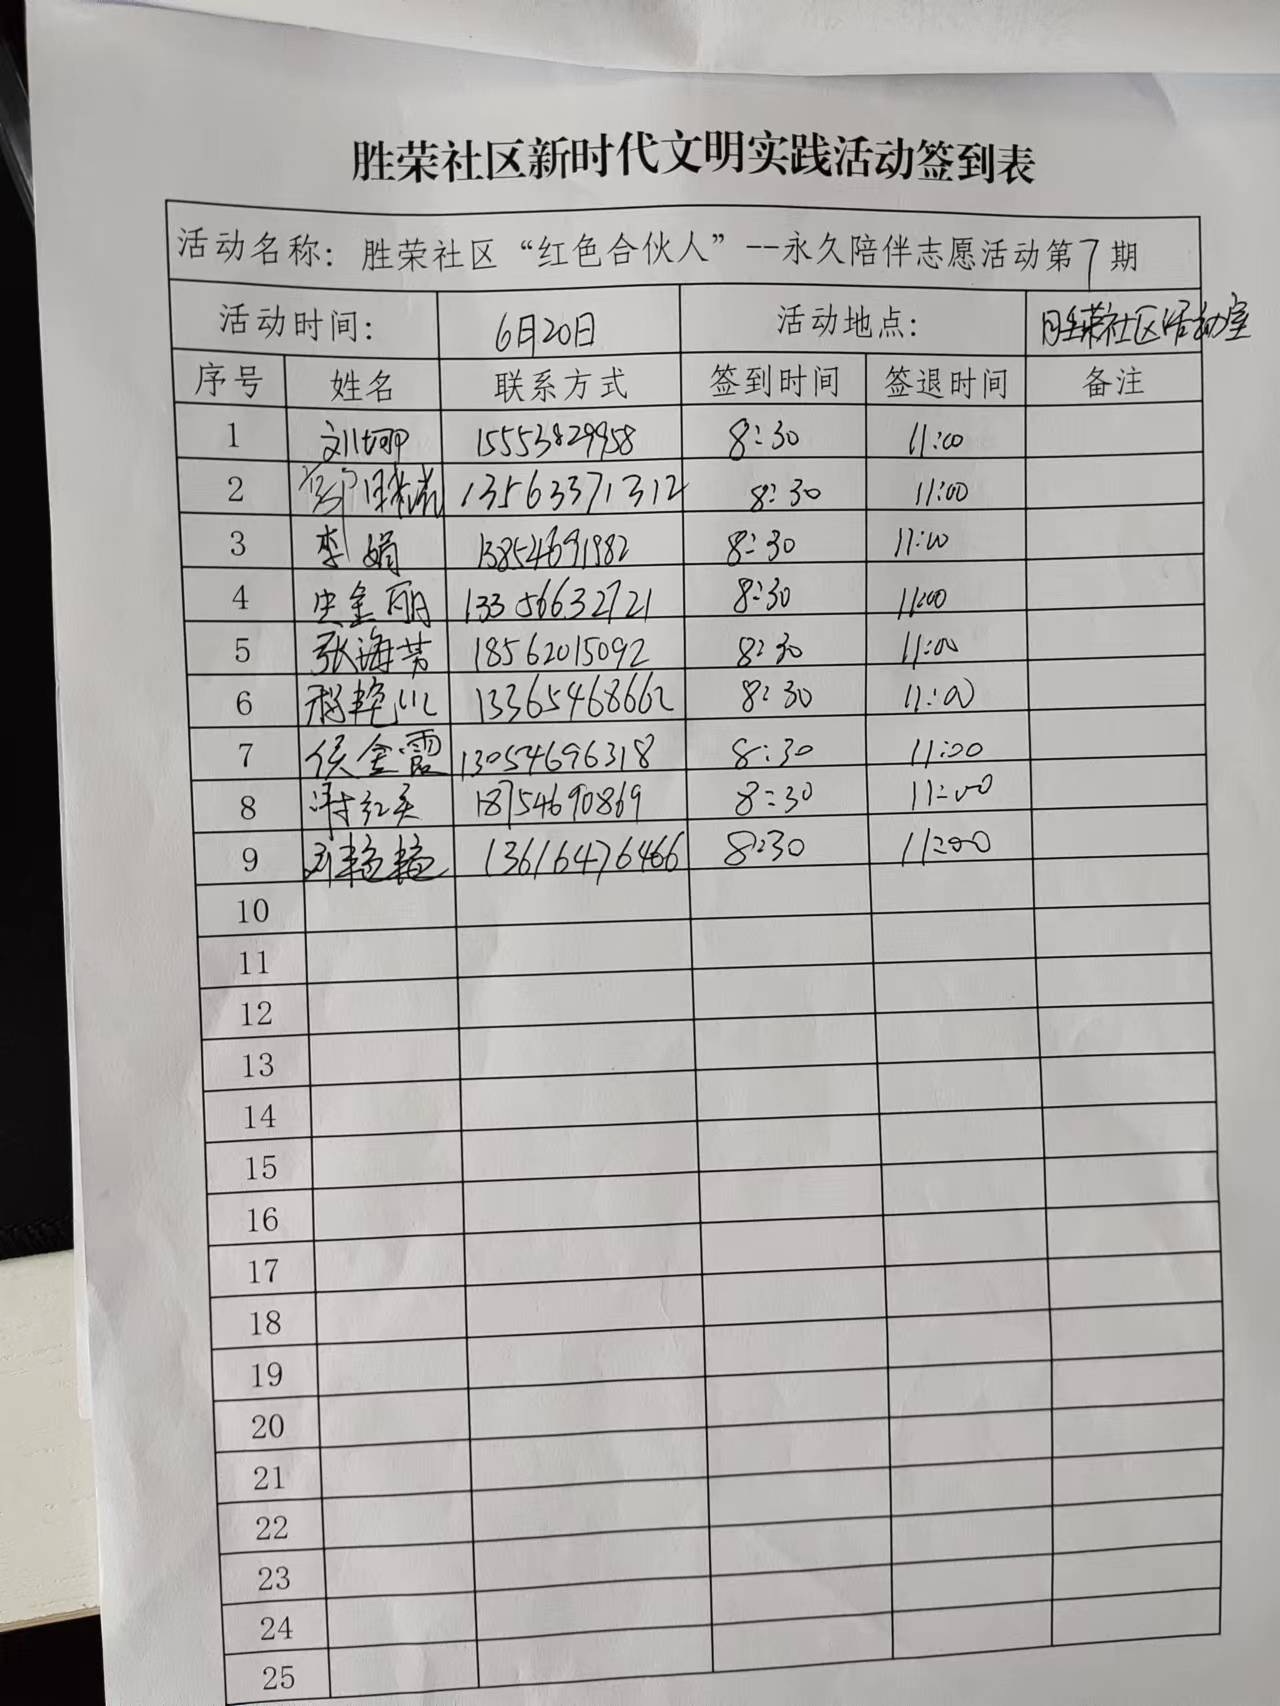 胜荣社区新时代文明实践活动签到表
活动名称：胜荣社区“红色合伙人”--永久陪伴志愿活动第7期
活动时间： 6月20日 活动地点： 胜荣社区活动室
序号 姓名 联系方式 签到时间 签退时间 备注
1 刘珊 15553829958 8:30 11:00
2 13563371312 8:30 11:00
3 李娟 13854691982 8:30 11:00
4 史金丽 13356632721 8:30 11:00
5 张海芳 18562015092 8:30 11:00
6 13365468662 8:30 11:00
7 侯金霞 13054696318 8:30 11:00
8 18754690869 8:30 11:00
9 艳艳 13616476466 8:30 11:00
10
11
12
13
14
15
16
17
18
19
20
21
22
23
24
25